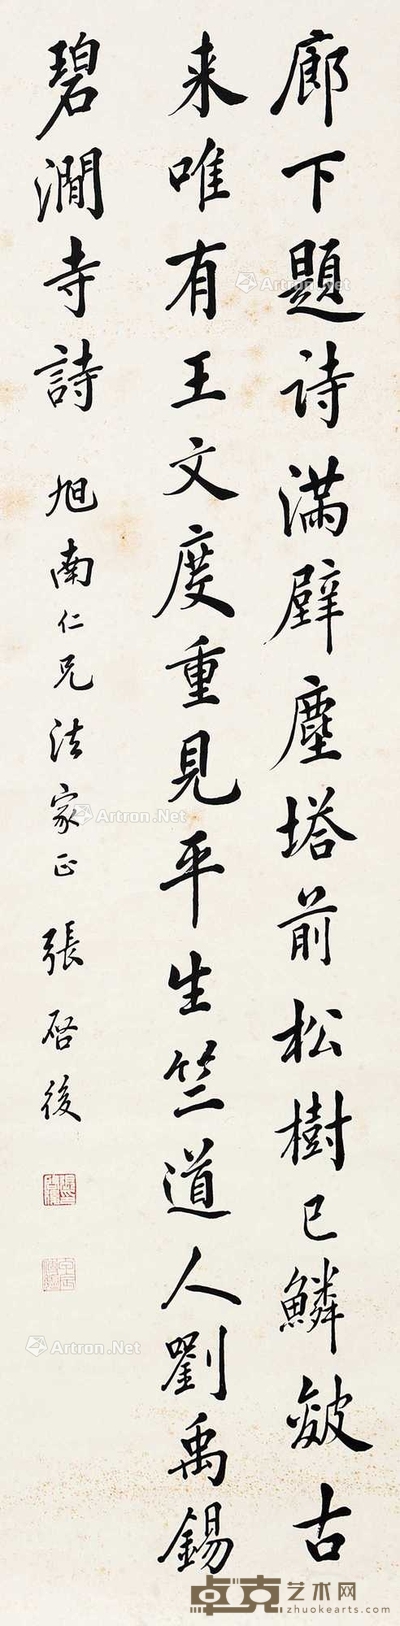 廊下題诗满壁塵塔前松樹已鱗皴古
来唯有王文度重見平生竺道人劉禹錫
碧澗寺詩 旭南仁兄法家正 張啓後
Artron.Net
Artron.Net
Artron.Net
卓克艺术网
zhuokearts.com